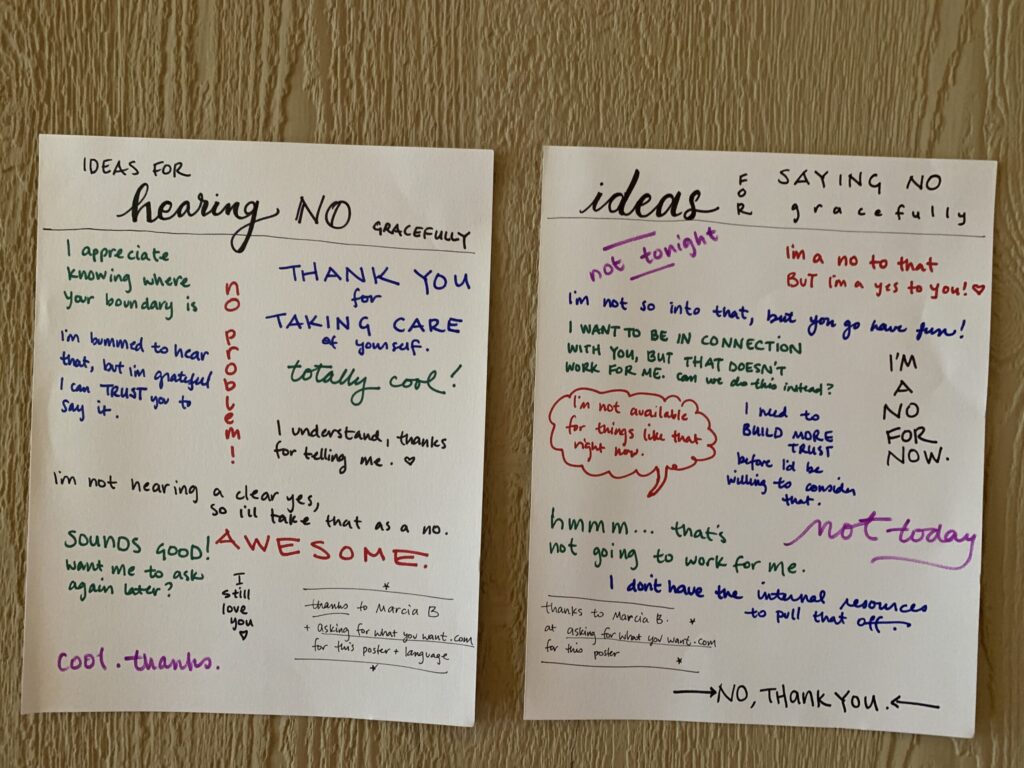 IDEAS FOR
hearing NO
GRACEFULLY
I appreciate
knowing where
your boundary is
no problem!
THANK YOU
for
TAKING CARE
of yourself.
I'm bummed to hear
that, but I'm grateful
I can TRUST you to
say it.
totally cool!
I understand, thanks
for telling me. ♡
I'm not hearing a clear yes,
so I'll take that as a no.
SOUNDS GOOD!
want me to ask
again later?
AWESOME.
I
still
love
you
♡
cool. thanks.
*
thanks to Marcia B
+ asking for what you want.com
for this poster + language
*
ideas FOR SAYING NO
gracefully
not tonight
I'm a no to that
BUT I'm a yes to you! ♡
I'm not so into that, but you go have fun!
I WANT TO BE IN CONNECTION
WITH YOU, BUT THAT DOESN'T
WORK FOR ME. can we do this instead?
I'M
A
NO
FOR
NOW.
I'm not available
for things like that
right now.
I need to
BUILD MORE
TRUST
before I'd be
willing to consider
that.
hmmm... that's
not going to work for me.
not today
I don't have the internal resources
to pull that off.
thanks to Marcia B. *
at asking for what you want.com
for this poster *
→NO, THANK YOU.←